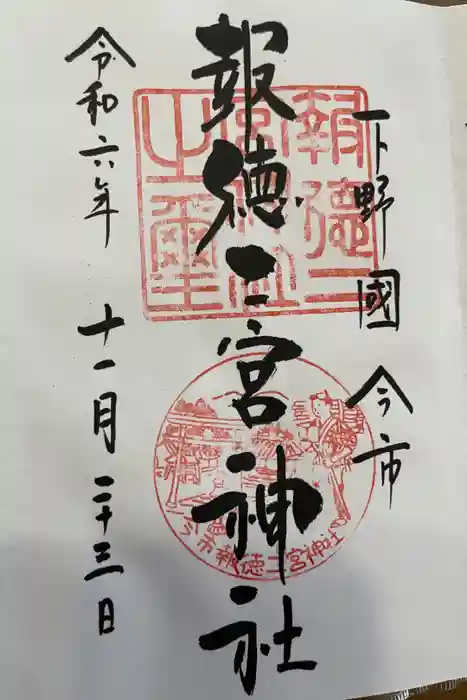 下野國 今市
報徳二宮神社
令和六年 十一月 二十三日
報徳二
宮神社
之璽
今市報徳二宮神社